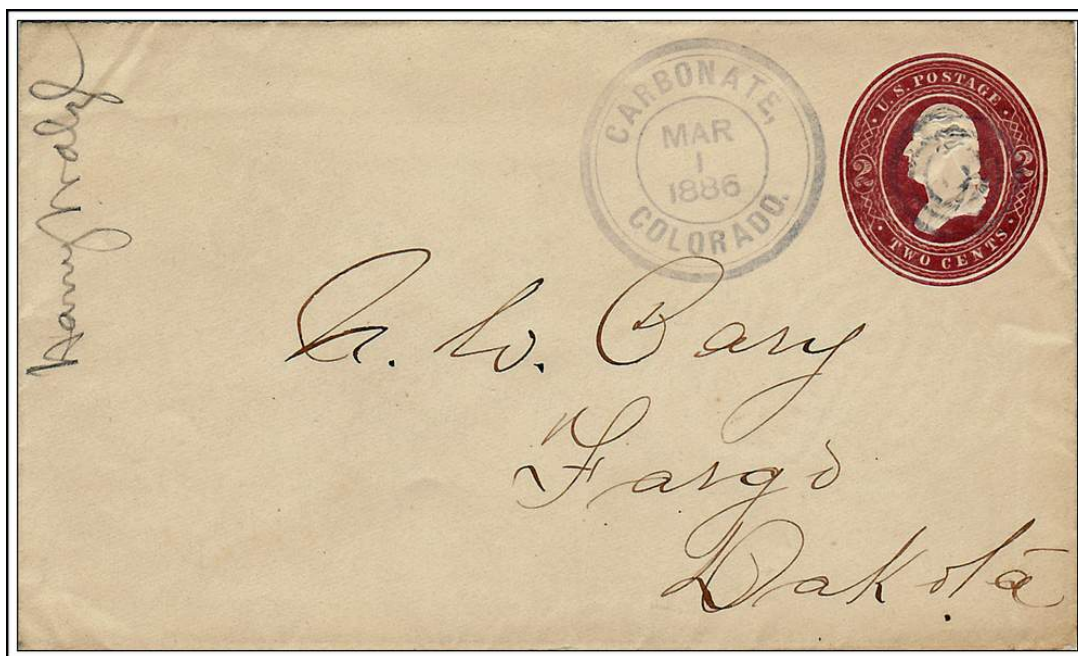 CARBONATE,
MAR
1
1886
COLORADO.
U. S. POSTAGE
2 2
TWO CENTS
Harry
A. W. Cary
Fargo
Dakota